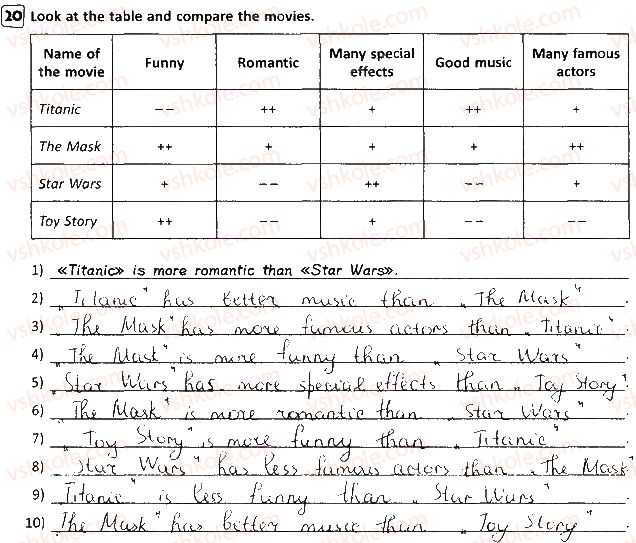 20 Look at the table and compare the movies.
Name of the movie Funny Romantic Many special effects Good music Many famous actors
Titanic -- ++ + ++ +
The Mask ++ + + + ++
Star Wars + -- ++ -- +
Toy Story ++ -- + -- --
1) «Titanic» is more romantic than «Star Wars».
2) „Titanic" has better music than „The Mask".
3) „The Mask" has more famous actors than „Titanic".
4) „The Mask" is more funny than „Star Wars".
5) „Star Wars" has more special effects than „Toy Story".
6) „The Mask" is more romantic than „Star Wars".
7) „Toy Story" is more funny than „Titanic".
8) „Star Wars" has less famous actors than „The Mask".
9) „Titanic" is less funny than „Star Wars".
10) „The Mask" has better music than „Toy Story".
vshkole.com